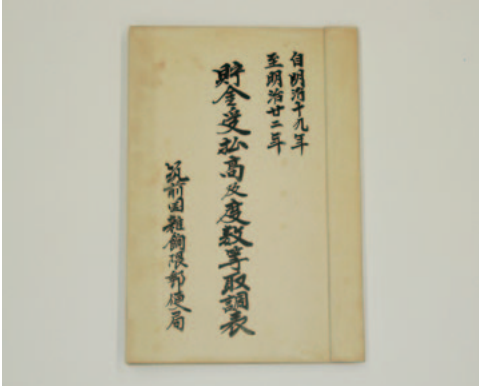 自明治十九年
至明治廿二年
貯金受払高及度数等取調表
筑前国雑餉隈郵便局